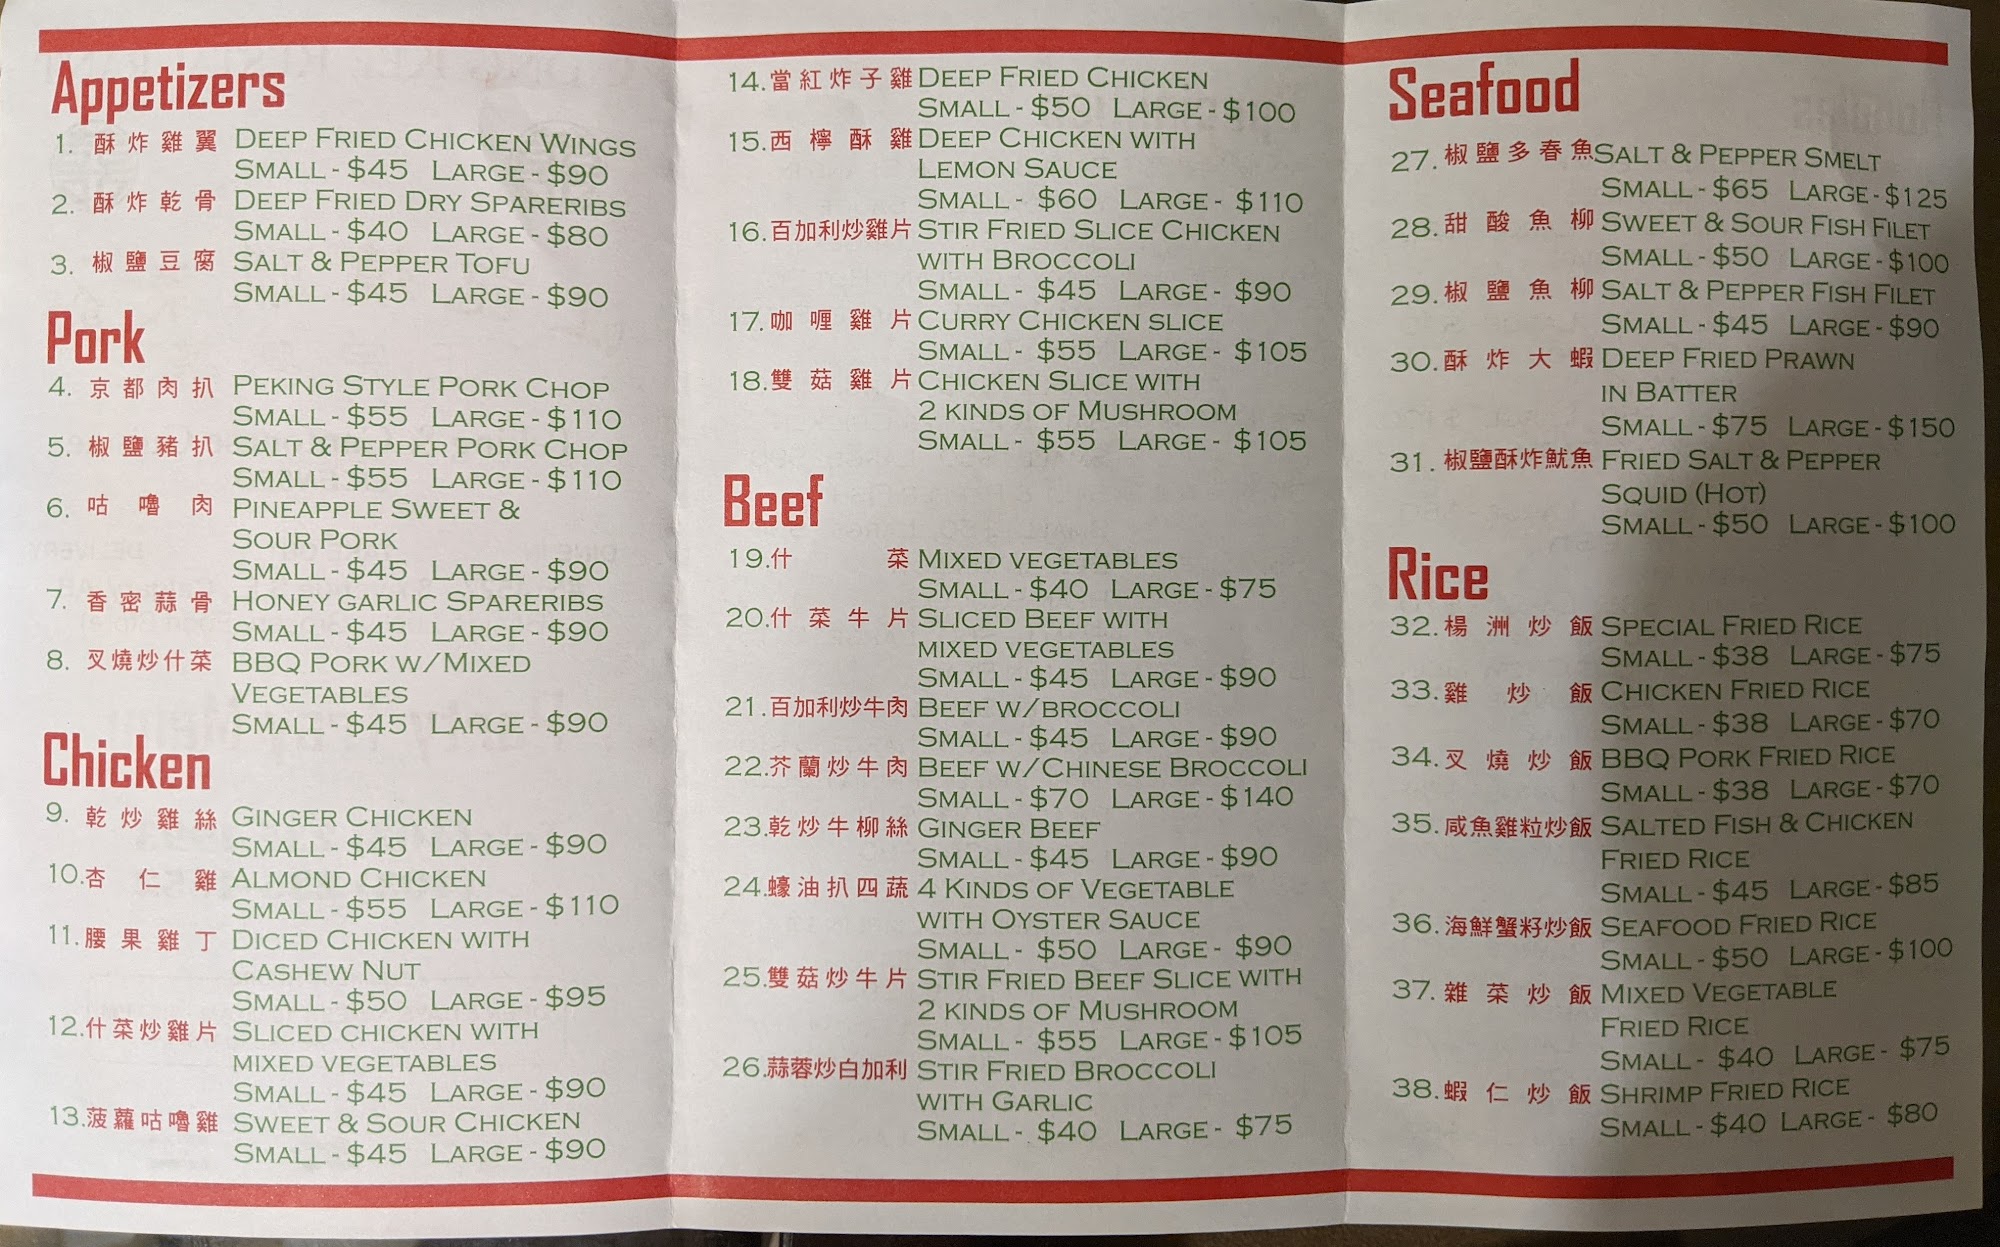 Appetizers
1. 酥炸雞翼 DEEP FRIED CHICKEN WINGS
SMALL - $45 LARGE - $90
2. 酥炸乾骨 DEEP FRIED DRY SPARERIBS
SMALL - $40 LARGE - $80
3. 椒鹽豆腐 SALT & PEPPER TOFU
SMALL - $45 LARGE - $90
Pork
4. 京都肉扒 PEKING STYLE PORK CHOP
SMALL - $55 LARGE - $110
5. 椒鹽豬扒 SALT & PEPPER PORK CHOP
SMALL - $55 LARGE - $110
6. 咕嚕肉 PINEAPPLE SWEET &
SOUR PORK
SMALL - $45 LARGE - $90
7. 香密蒜骨 HONEY GARLIC SPARERIBS
SMALL - $45 LARGE - $90
8. 叉燒炒什菜 BBQ PORK W/MIXED
VEGETABLES
SMALL - $45 LARGE - $90
Chicken
9. 乾炒雞絲 GINGER CHICKEN
SMALL - $45 LARGE - $90
10. 杏仁雞 ALMOND CHICKEN
SMALL - $55 LARGE - $110
11. 腰果雞丁 DICED CHICKEN WITH
CASHEW NUT
SMALL - $50 LARGE - $95
12. 什菜炒雞片 SLICED CHICKEN WITH
MIXED VEGETABLES
SMALL - $45 LARGE - $90
13. 菠蘿咕嚕雞 SWEET & SOUR CHICKEN
SMALL - $45 LARGE - $90
14. 當紅炸子雞 DEEP FRIED CHICKEN
SMALL - $50 LARGE - $100
15. 西檸酥雞 DEEP CHICKEN WITH
LEMON SAUCE
SMALL - $60 LARGE - $110
16. 百加利炒雞片 STIR FRIED SLICE CHICKEN
WITH BROCCOLI
SMALL - $45 LARGE - $90
17. 咖喱雞片 CURRY CHICKEN SLICE
SMALL - $55 LARGE - $105
18. 雙菇雞片 CHICKEN SLICE WITH
2 KINDS OF MUSHROOM
SMALL - $55 LARGE - $105
Beef
19. 什菜 MIXED VEGETABLES
SMALL - $40 LARGE - $75
20. 什菜牛片 SLICED BEEF WITH
MIXED VEGETABLES
SMALL - $45 LARGE - $90
21. 百加利炒牛肉 BEEF W/BROCCOLI
SMALL - $45 LARGE - $90
22. 芥蘭炒牛肉 BEEF W/CHINESE BROCCOLI
SMALL - $70 LARGE - $140
23. 乾炒牛柳絲 GINGER BEEF
SMALL - $45 LARGE - $90
24. 蠔油扒四蔬 4 KINDS OF VEGETABLE
WITH OYSTER SAUCE
SMALL - $50 LARGE - $90
25. 雙菇炒牛片 STIR FRIED BEEF SLICE WITH
2 KINDS OF MUSHROOM
SMALL - $55 LARGE - $105
26. 蒜蓉炒白加利 STIR FRIED BROCCOLI
WITH GARLIC
SMALL - $40 LARGE - $75
Seafood
27. 椒鹽多春魚 SALT & PEPPER SMELT
SMALL - $65 LARGE - $125
28. 甜酸魚柳 SWEET & SOUR FISH FILET
SMALL - $50 LARGE - $100
29. 椒鹽魚柳 SALT & PEPPER FISH FILET
SMALL - $45 LARGE - $90
30. 酥炸大蝦 DEEP FRIED PRAWN
IN BATTER
SMALL - $75 LARGE - $150
31. 椒鹽酥炸魷魚 FRIED SALT & PEPPER
SQUID (HOT)
SMALL - $50 LARGE - $100
Rice
32. 楊洲炒飯 SPECIAL FRIED RICE
SMALL - $38 LARGE - $75
33. 雞炒飯 CHICKEN FRIED RICE
SMALL - $38 LARGE - $70
34. 叉燒炒飯 BBQ PORK FRIED RICE
SMALL - $38 LARGE - $70
35. 咸魚雞粒炒飯 SALTED FISH & CHICKEN
FRIED RICE
SMALL - $45 LARGE - $85
36. 海鮮蟹籽炒飯 SEAFOOD FRIED RICE
SMALL - $50 LARGE - $100
37. 雜菜炒飯 MIXED VEGETABLE
FRIED RICE
SMALL - $40 LARGE - $75
38. 蝦仁炒飯 SHRIMP FRIED RICE
SMALL - $40 LARGE - $80